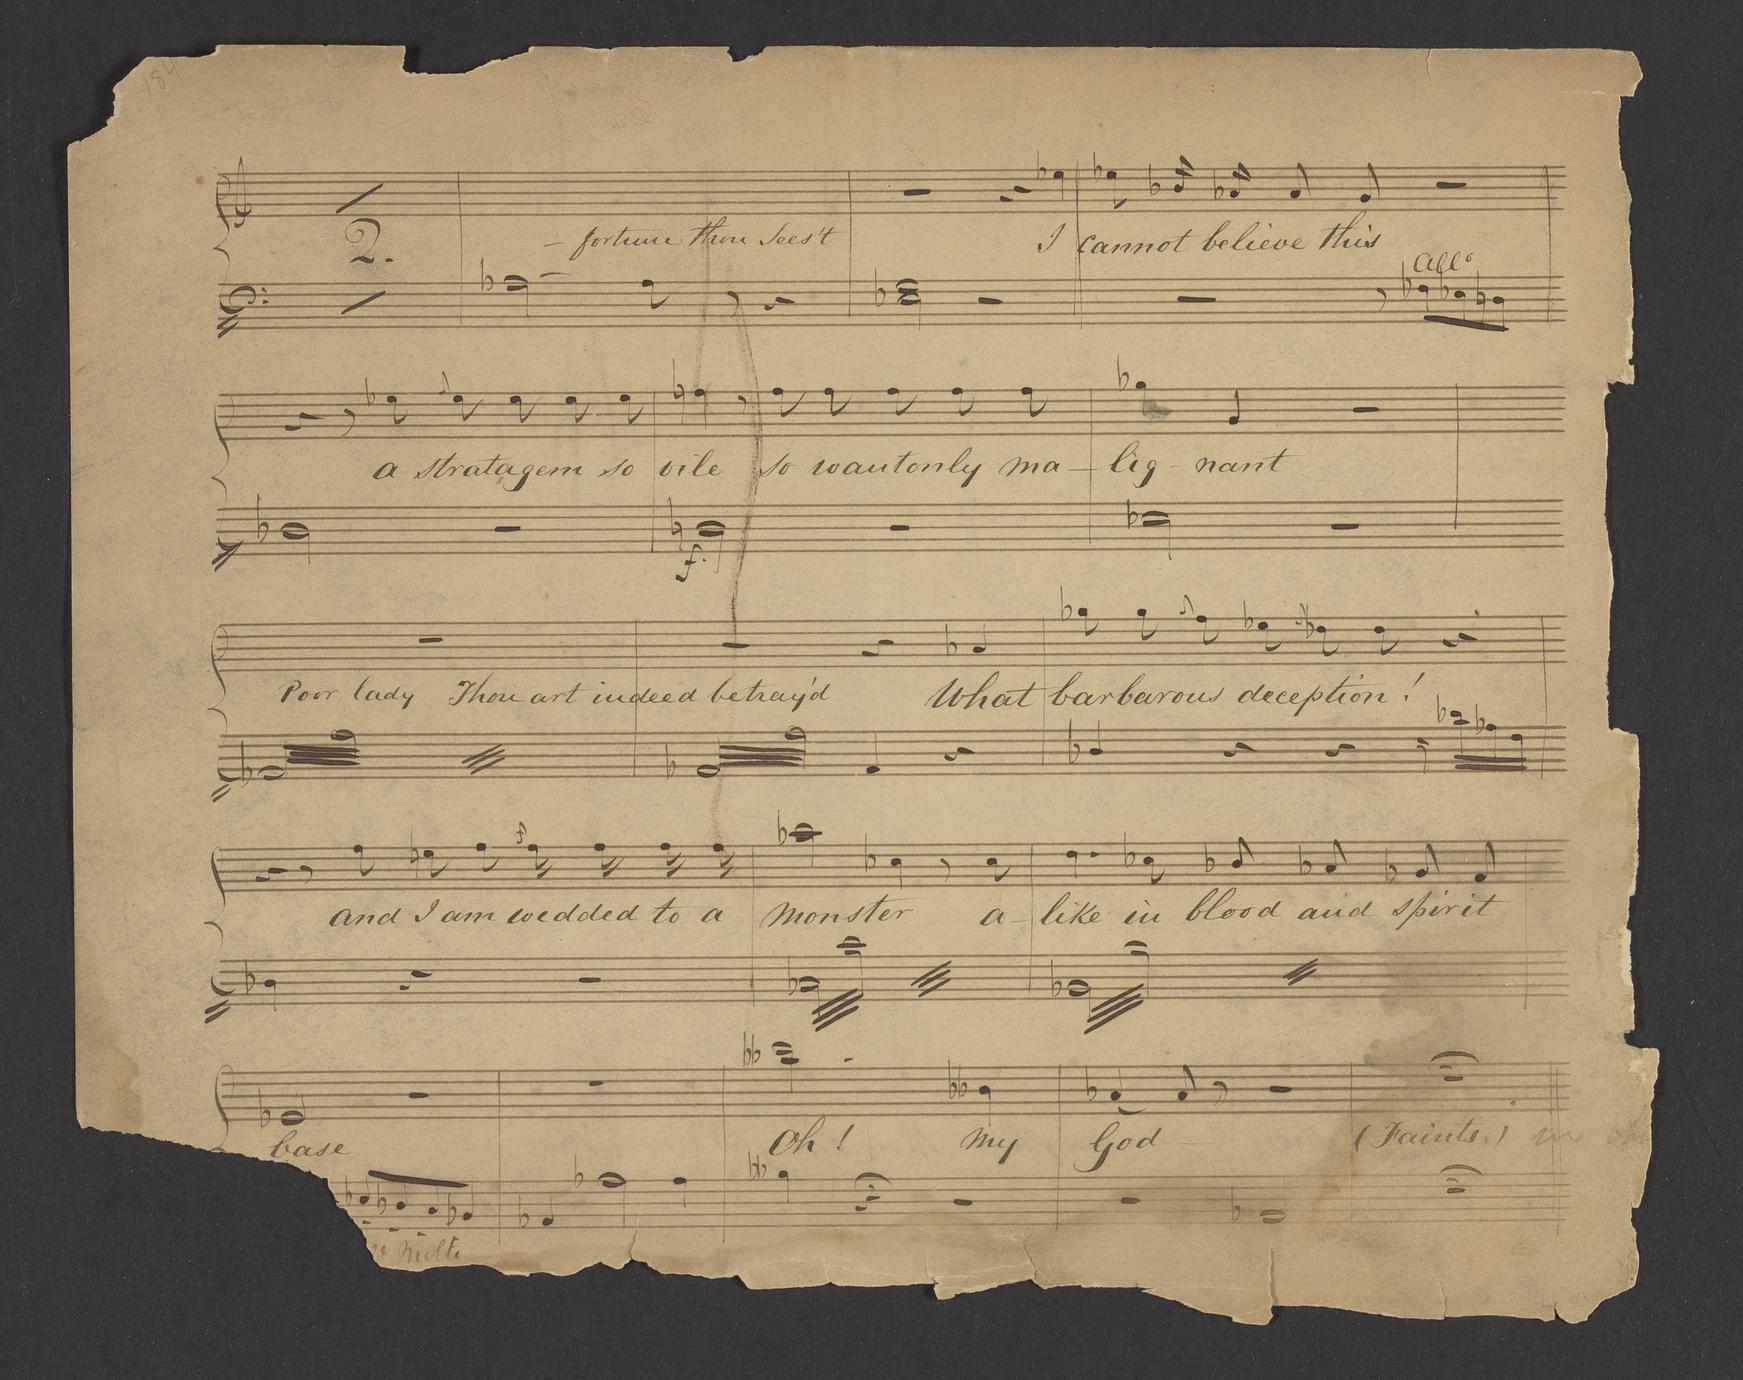 184
2.
- fortune thou sees't I cannot believe this
Allo
a stratagem so vile so wantonly ma - lig - nant
f.
Poor lady Thou art indeed betray'd What barbarous deception!
and I am wedded to a monster a - like in blood and spirit
base Oh! My God (Faints.)
molto